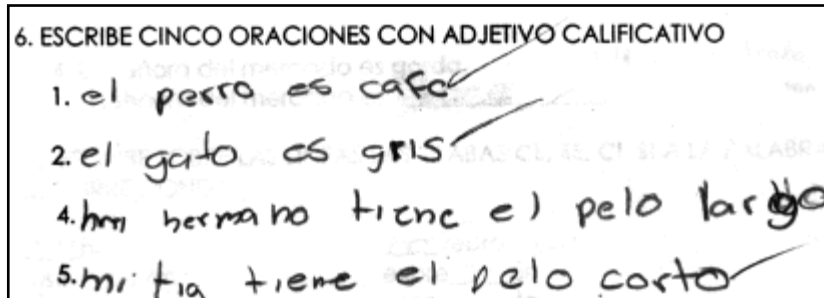 6. ESCRIBE CINCO ORACIONES CON ADJETIVO CALIFICATIVO
1. el perro es cafe
2. el gato es gris
4. mi hermano tiene el pelo largo
5. mi tia tiene el pelo corto